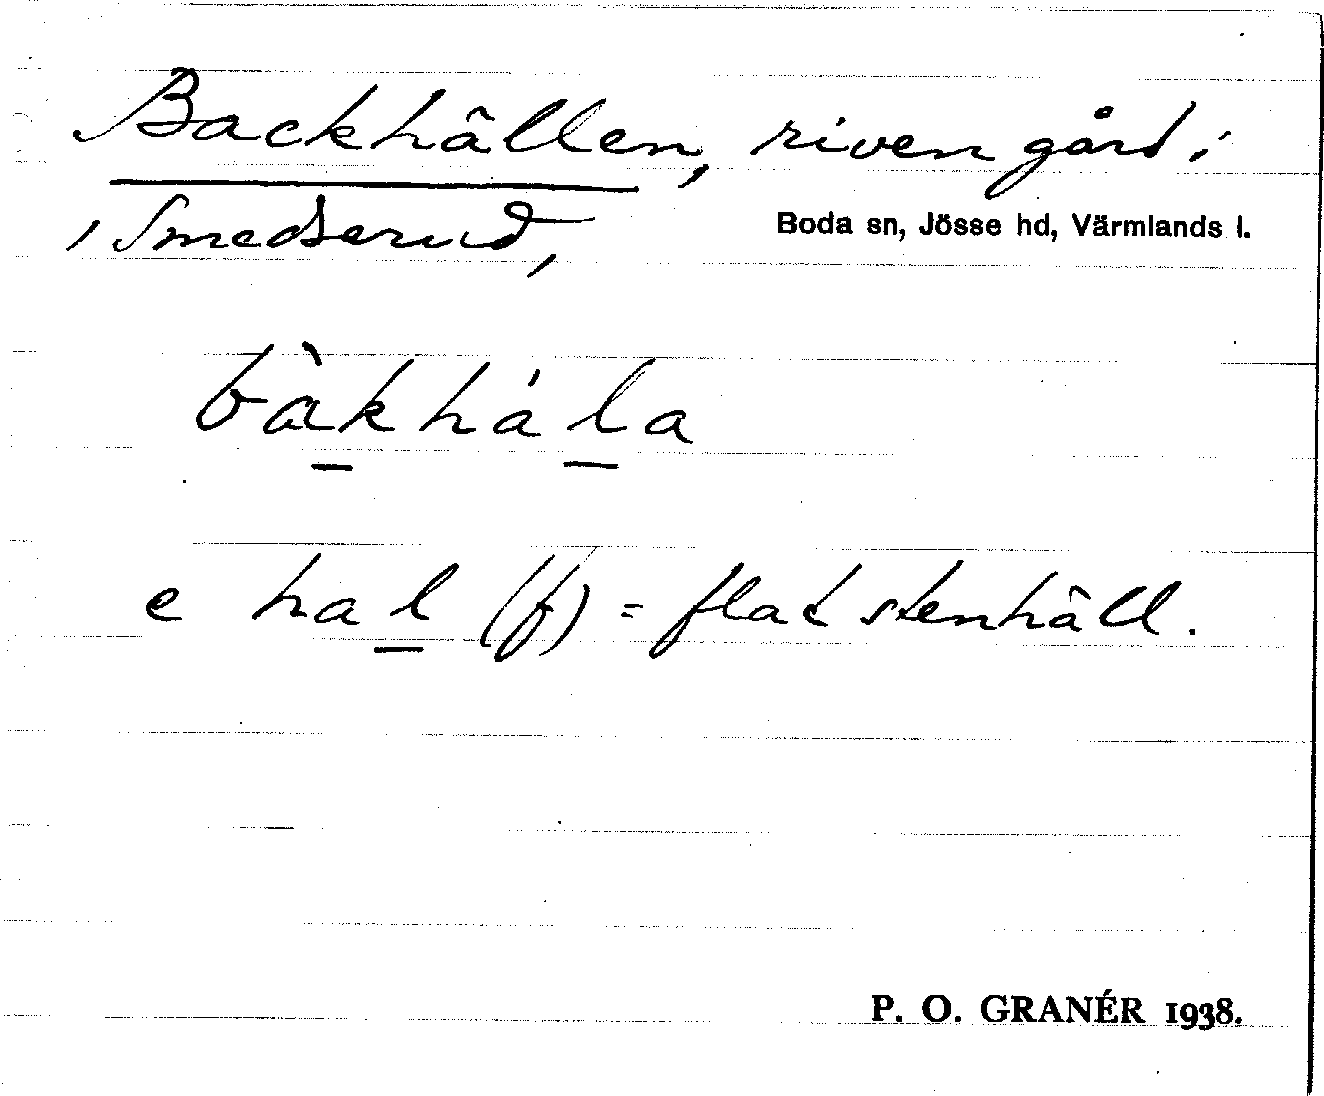 Backhällen, riven gård i
i Smedserud,
Boda sn, Jösse hd, Värmlands l.
bàkhála
e hal (f) = flat stenhäll.
P. O. GRANÉR 1938.